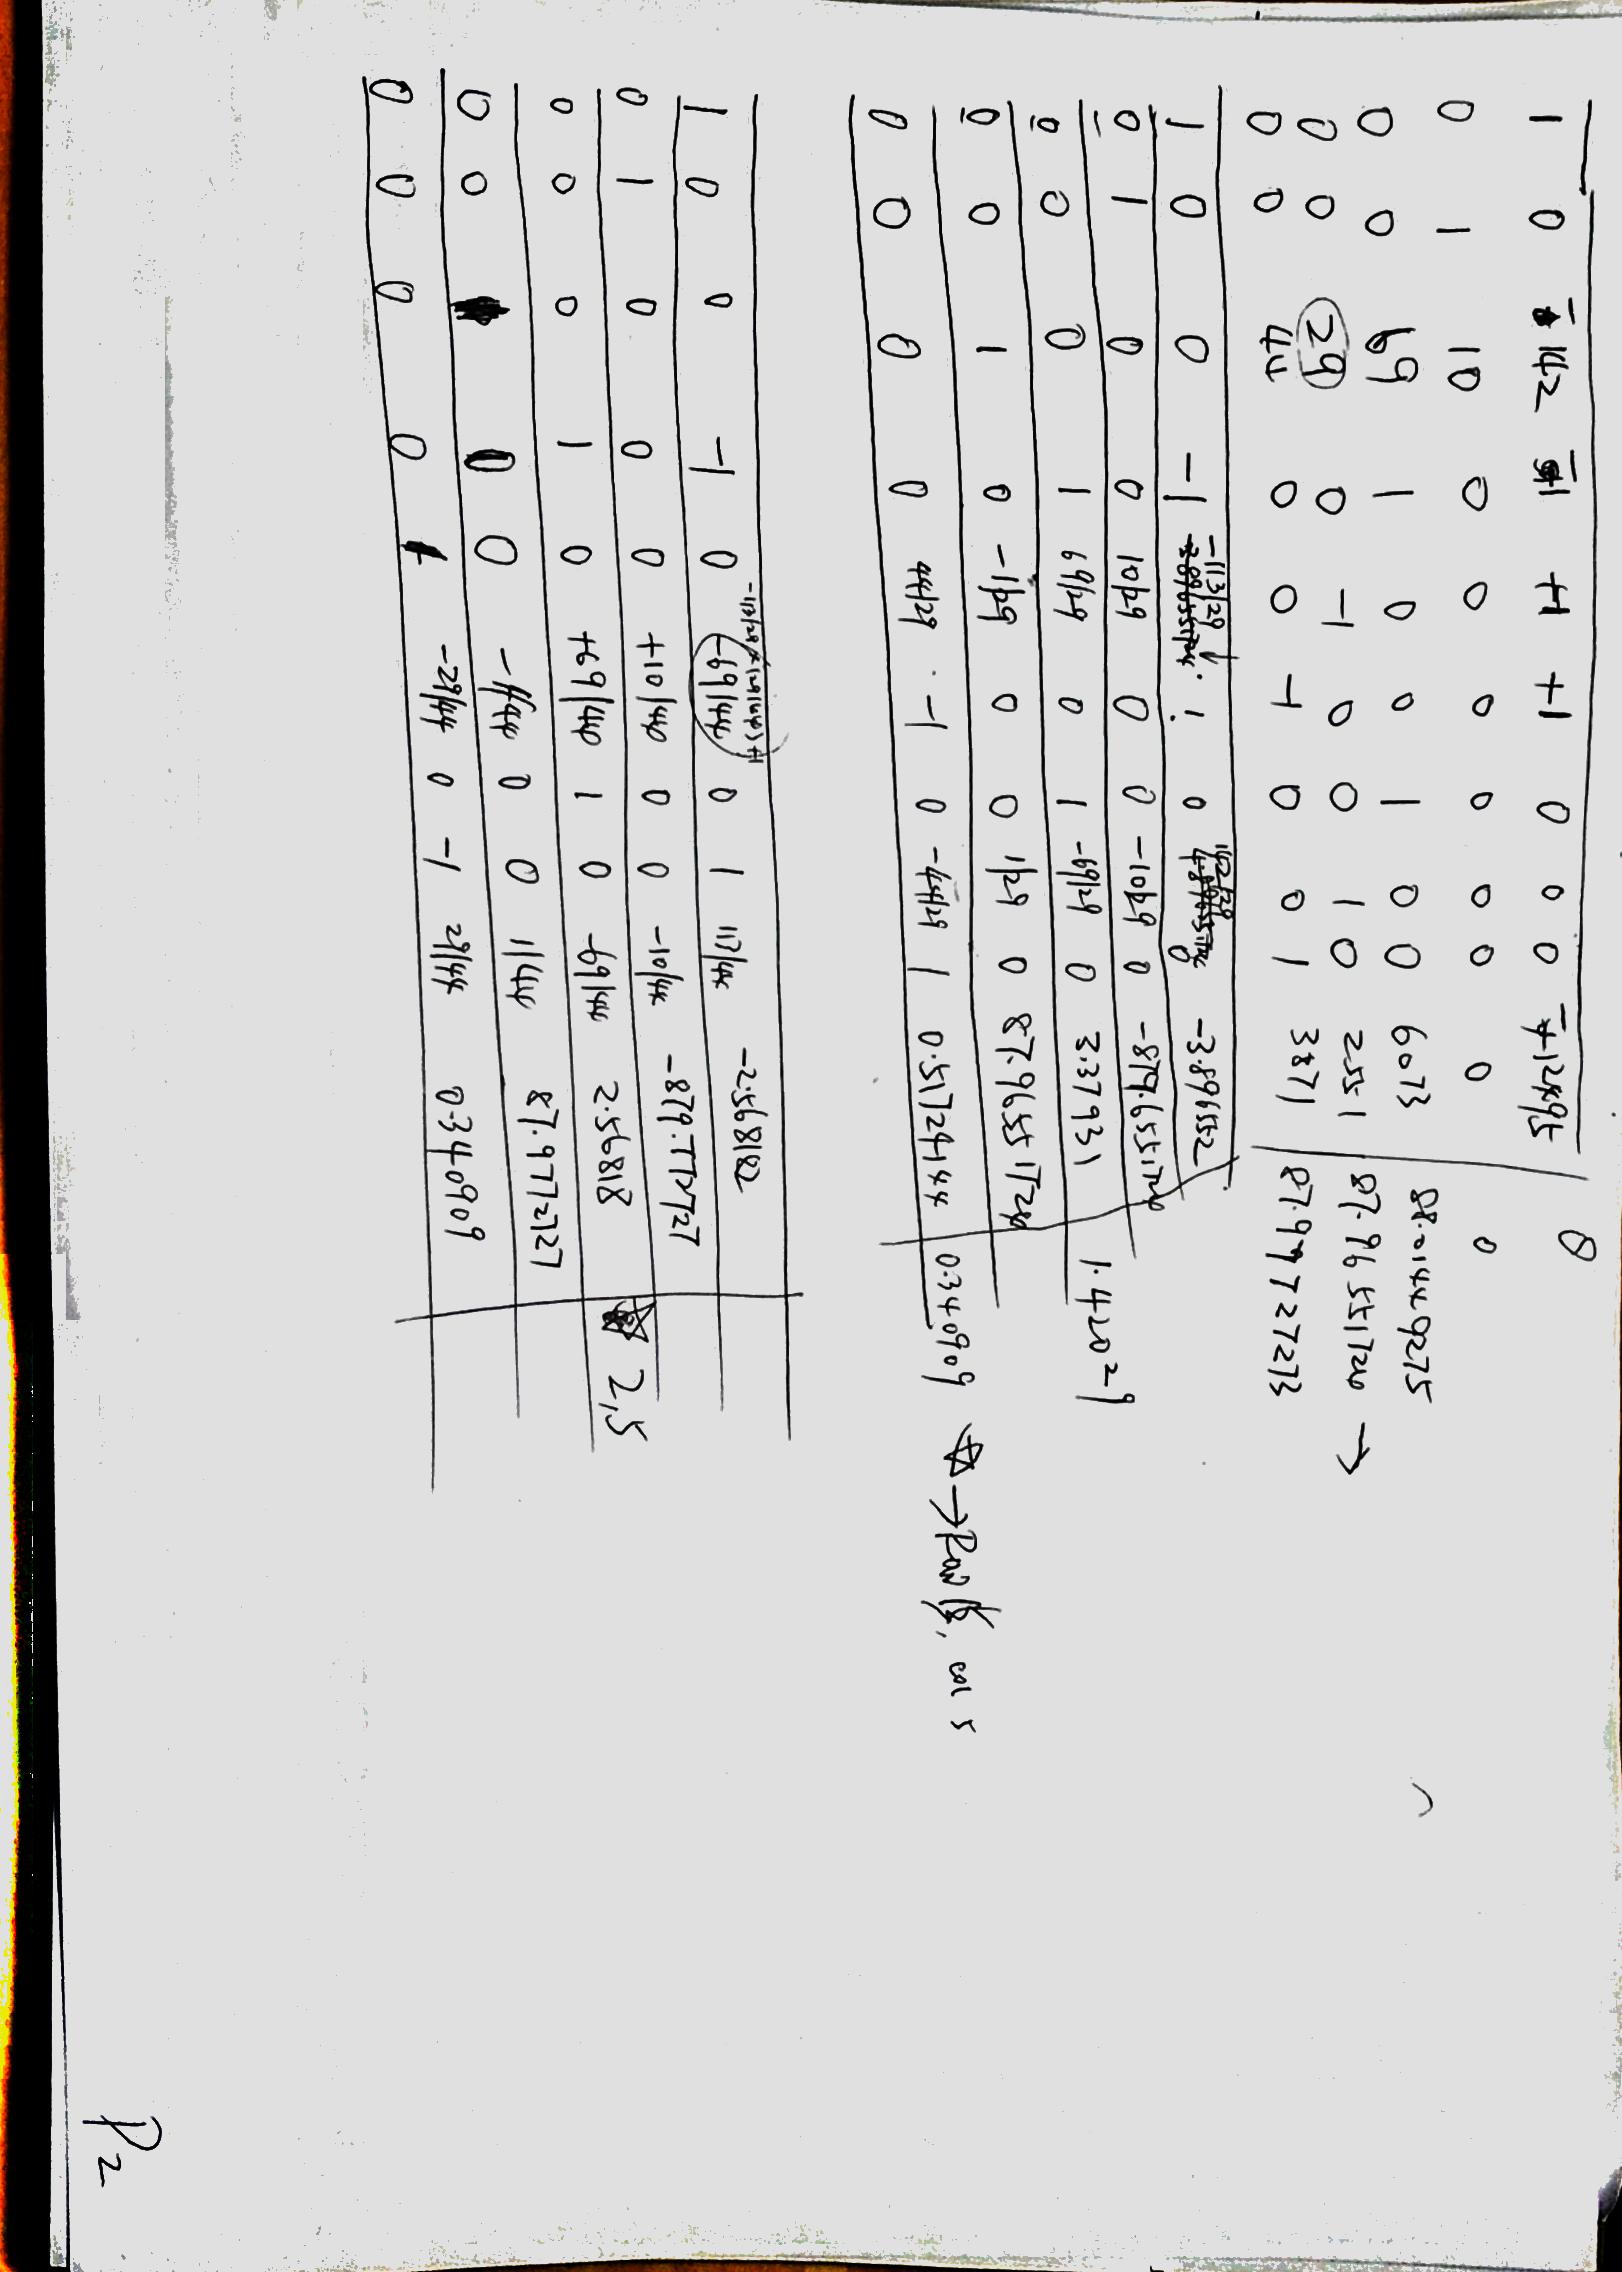 1 0 -142 -1 +1 +1 0 0 0 -12495 0
0 1 10 0 0 0 0 0 0 0 0
0 0 69 1 0 0 1 0 0 6073 88.01449275
0 0 29 0 -1 0 0 1 0 2551 87.96551724 →
0 0 44 0 0 -1 0 0 1 3871 87.97727273
-113/29 ↓ 142/29
1 0 0 -1 1 0 0 -3.896552
0 1 0 0 10/29 0 0 -10/29 0 -879.6551724
0 0 0 1 69/29 0 1 -69/29 0 3.37931 1.42029
0 0 1 0 -1/29 0 0 1/29 0 87.96551724
0 0 0 0 44/29 -1 0 -44/29 1 0.51724144 0.340909 ☆ → Row, col 5
1 0 0 -1 0 -69/44 0 1 117/44 -2.568182
0 1 0 0 0 +10/44 0 0 -10/44 -879.772727
0 0 0 1 0 +69/44 1 0 -69/44 2.56818 2,5
0 0 0 0 -1/44 0 0 1/44 87.977272727
0 0 0 0 1 -29/44 0 -1 29/44 0.340909
P2